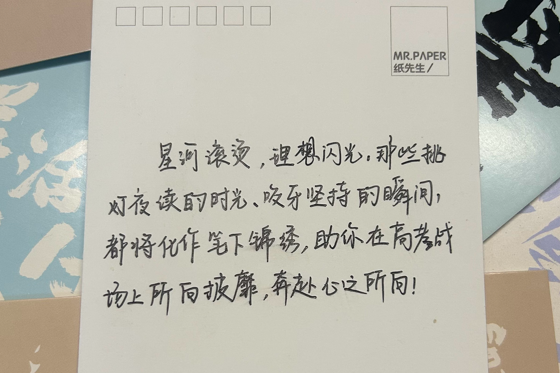 MR.PAPER
纸先生/
星河滚烫,理想闪光。那些挑
灯夜读的时光、咬牙坚持的瞬间,
都将化作笔下锦绣,助你在高考战
场上所向披靡,奔赴心之所向!